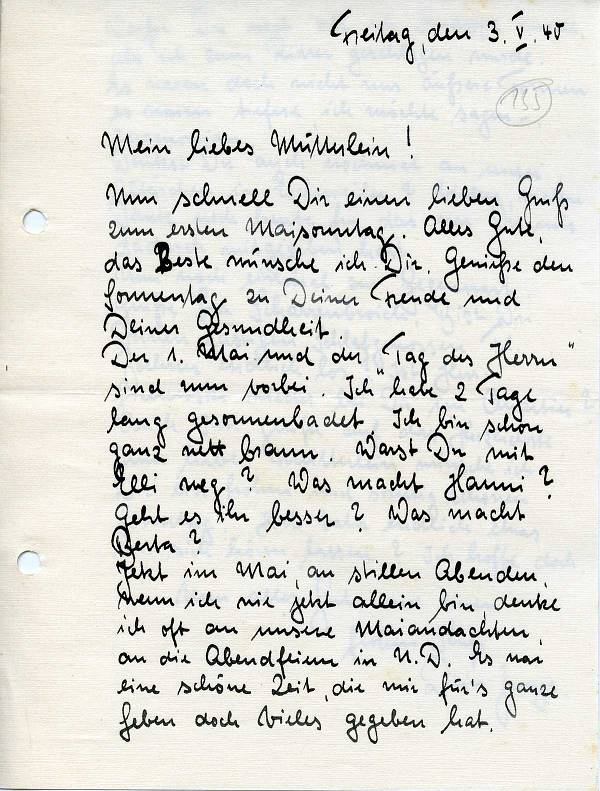 Freitag, den 3. V. 40
135
Mein liebes Mütterlein!
Nun schnell Dir einen lieben Gruß
zum ersten Maisonntag. Alles Gute,
das Beste wünsche ich Dir. Genieße den
Sonnentag zu Deiner Freude und
Deiner Gesundheit.
Der 1. Mai und der "Tag des Herrn"
sind nun vorbei. Ich habe 2 Tage
lang gesonnenbadet. Ich bin schon
ganz nett braun. Warst Du mit
Elli weg? Was macht Hanni?
Geht es ihr besser? Was macht
Berta?
Jetzt im Mai, an stillen Abenden,
wenn ich wie jetzt allein bin, denke
ich oft an unsere Maiandachten,
an die Abendfeiern in N.D. Es war
eine schöne Zeit, die mir für's ganze
Leben doch vieles gegeben hat.